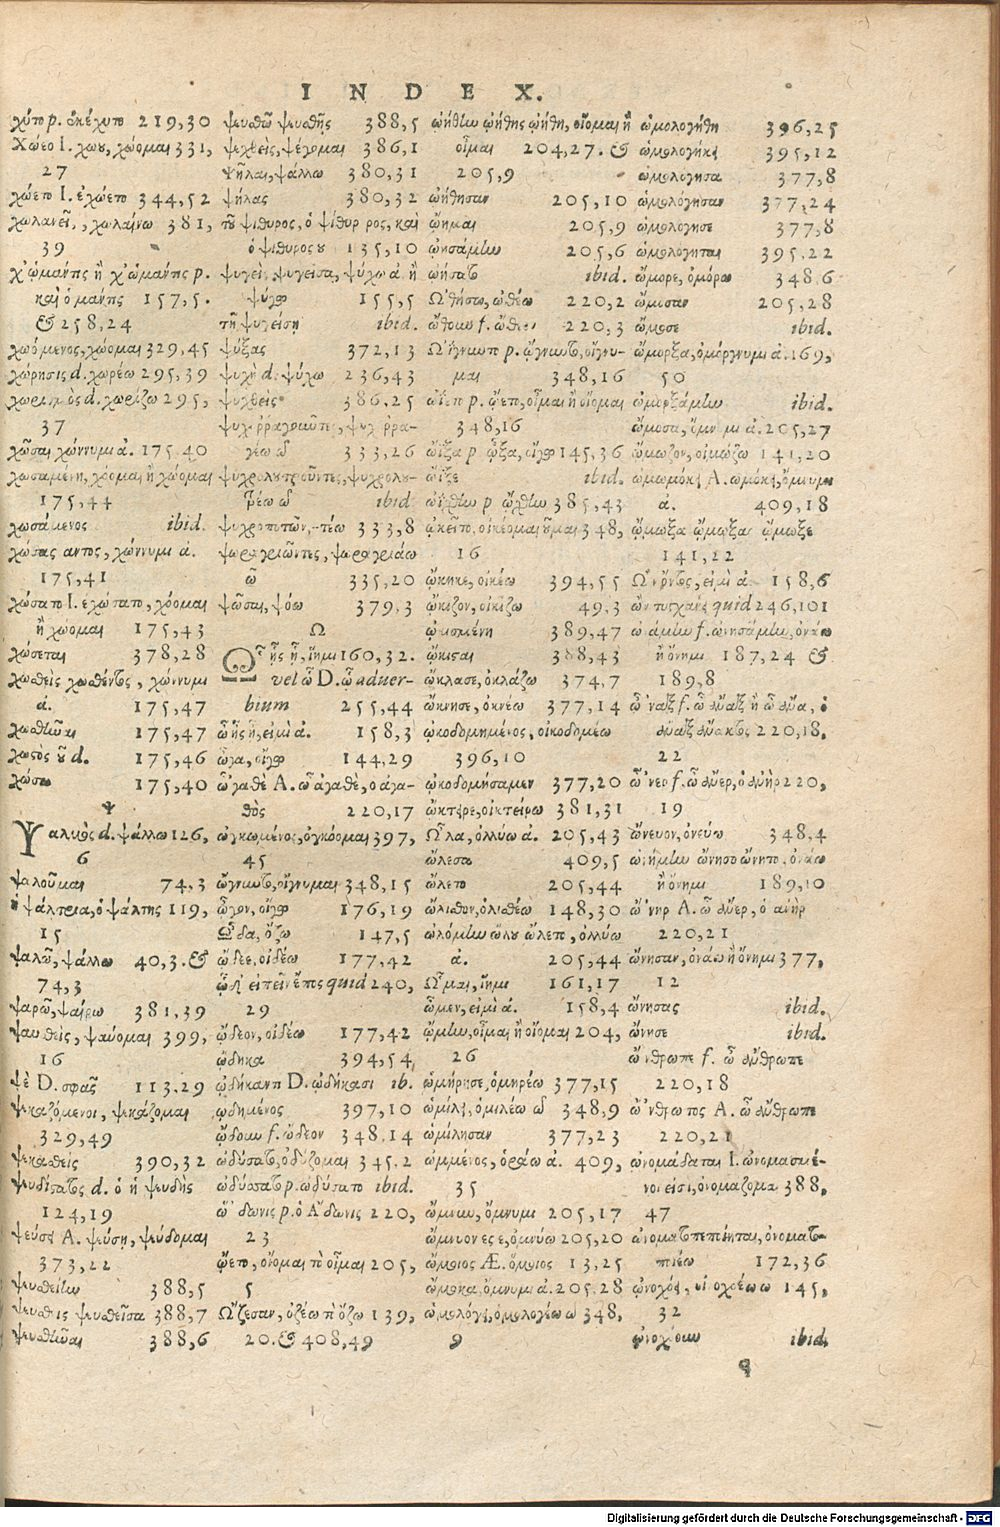 INDEX.
χύτο p. ἐκέχυτο 219,30
Χώεο I. χώου, χώομαι 331,
27
χώετο I. ἐχώετο 344,52
χωλανεῖ, χωλαίνω 381,
39
p.
καὶ ὁ 157,5.
& 258,24
χωόμενος, χώομαι 329,45
χώρησις d. χωρέω 295,39
d. χωρίζω 295,
37
χῶσαι, χώννυμι ά. 175,40
χωσαμένη, χόομαι ἢ χώομαι
175,44
χωσάμενος ibid.
χώσας αντος, χώννυμι ά.
175,41
χώσατο I. ἐχώσατο, χόομαι
ἢ χώομαι 175,43
χώσεται 378,28
χωθεὶς χωθέντος, χώννυμι
ά. 175,47
175,47
χωστὸς οῦ d. 175,46
χώσω 175,40
Ψ
Ψαλμὸς d. ψάλλω 126,
6
ψαλοῦμαι 74,3
ἡ ψάλτρια, ὁ ψάλτης 119,
15
ψαλῶ, ψάλλω 40,3. &
74,3
ψαρῶ, ψαίρω 381,39
ψαυθεὶς, ψαύομαι 399,
16
ψὲ D. σφας 113,29
ψεκαζόμενοι, ψεκάζομαι
329,49
ψεκαθεὶς 390,32
d. ὁ ἡ ψευδὴς
124,19
ψεύσῃ A. ψεύσῃ, ψεύδομαι
373,22
388,5
ψευσθεῖσα 388,7
388,6
ψευσθῶ ψευσθῇς 388,5
ψεχθεὶς, ψέγομαι 386,1
ψῆλαι, ψάλλω 380,31
ψήλας 380,32
τοῦ ψίθυρος, ὁ ψίθυρ ρος, καὶ
ὁ ψίθυρος ου 135,10
ψυγεὶς, ψυγεῖσα, ψύχω ά. ἢ
ψύγω 155,5
τῇ ψυγείσῃ ibid.
ψύξας 372,13
ψυχὴ d. ψύχω 236,43
ψυχθεὶς 386,25
γέω ῶ 333,26
ψυχρολουτροῦντες, ψυχρολου-
τρέω ῶ ibid
ψυχροποτῶν, -τέω 333,8
ψωριῶντες, ψωριάω
ῶ 335,20
ψῶσαι, ψόω 379,3
Ω
Ὦ ῇς ῇ, ἵημι 160,32.
vel ὦ D. ὦ aduer-
bium 255,44
ὦ ῇς ῇ, εἰμὶ ά. 158,3
ᾦγα, οἴγω 144,29
ὦγαθὲ A. ὦ ἀγαθὲ, ὁ ἀγα-
θὸς 220,17
ὠγκωμένος, ὀγκόομαι 397,
45
ᾤγνυτο, οἴγνυμαι 348,15
ᾦγον, οἴγω 176,19
Ὦδα, ὄζω 147,5
ᾤδεε, οἰδέω 177,42
ᾧδ' εἰπεῖν ἔπος quid 240,
29
ᾤδεον, οἰδέω 177,42
ᾤδηκα 394,54
D. ᾠδήκασι ib.
ᾠδημένος 397,10
ᾤδουν f. ᾤδεον 348,14
ὠδύσατο, ὀδύζομαι 345,2
p. ὠδύσατο ibid.
ὤ'δωνις p. ὁ Ἄ'δωνις 220,
23
ᾤετο, οἴομαι οἶμαι 205,
5
Ὤζεσαν, ὀζέω ὄζω 139,
20. & 408,49
ᾠήθην ᾠήθης ᾠήθη, οἴομαι ἢ
οἶμαι 204,27. &
205,9
ᾠήθησαν 205,10
ᾤημαι 205,9
ᾠησάμην 205,6
ᾠήσατο ibid.
Ὠ'θήσω, ὠθέω 220,2
ὤθουν f. ὤθεον 220,3
p. ᾤγνυτο, οἴγνυ-
μαι 348,16
p. ᾤετο, οἶμαι ἢ οἴομαι
348,16
ὤϊξα p ᾦξα, οἴγω 145,36
ὤϊξε ibid.
ὠΐχθην p ᾤχθην 385,43
ᾠκεῖτο, οἰκέομαι οῦμαι 348,
16
ᾤκηκε, οἰκέω 394,55
ᾤκιζον, οἰκίζω 49,3
ᾠκισμένη 389,47
ᾤκισται 388,43
ὤκλασε, ὀκλάζω 374,7
ὤκνησε, ὀκνέω 377,14
ᾠκοδομημένος, οἰκοδομέω
396,10
ᾠκοδομήσαμεν 377,20
ᾤκτειρε, οἰκτείρω 381,31
Ὦλα, ὀλλύω ά. 205,43
ὤλεσα 409,5
ὤλετο 205,44
ὤλισθον, ὀλισθέω 148,30
ὠλόμην ὤλου ὤλετο, ὀλλύω
ά. 205,44
Ὦμαι, ἵημι 161,17
ὦμεν, εἰμὶ ά. 158,4
ᾤμην, οἶμαι ἢ οἴομαι 204,
26
ὡμήρησε, ὁμηρέω 377,15
ὡμίλει, ὁμιλέω ῶ 348,9
ὡμίλησαν 377,23
ὠμμένος, ὁράω ά. 409,
35
ὤμνυν, ὄμνυμι 205,17
ὤμνυον ες ε, ὀμνύω 205,20
ὤμοιος Æ. ὅμοιος 13,25
ὤμοκα, ὄμνυμι ά. 205.28
ὡμολόγει, ὁμολογέω ῶ 348,
9
ὡμολογήθη 396,25
ὡμολογήκει 395,12
ὡμολόγησα 377,8
ὡμολόγησαν 377,24
ὡμολόγησε 377,8
ὡμολόγηται 395,22
348,6
ὤμοσαν 205,28
ὤμοσε ibid.
ὤμορξα, ὀμόργνυμι ά. 169,
50
ὠμορξάμην ibid.
ὤμοσα, ὄμνυμι ά. 205,27
ᾤμωζον, οἰμώζω 141,20
ὠμωμόκει A. ὀμωμόκει, ὄμνυμι
ά. 409,18
ᾤμωξα ᾤμωξας ᾤμωξε
141,22
εἰμὶ ά 158,6
quid 246,101
f. ὠνησάμην, ὀνάω
ἢ ὄνημι 187,24 &
189,8
ὦ'ναξ f. ὦ ἄναξ ἢ ὦ ἄνα, ὁ
ἄναξ ἄνακτος 220,18,
22
ὦ'νερ f. ὦ ἄνερ, ὁ ἀνὴρ 220,
19
ὤνευον, ὀνεύω 348,4
ὠνήμην ὤνησο ὤνητο, ὀνάω
ἢ ὄνημι 189,10
ὤ'νηρ A. ὦ ἄνερ, ὁ ἀνὴρ
220,21
ὤνησαν, ὀνάω ἢ ὄνημι 377,
12
ὤνησας ibid.
ὤνησε ibid.
ὤ'νθρωπε f. ὦ ἄνθρωπε
220,18
ὤ'νθρωπος A. ὦ ἄνθρωπε
220,21
ὠνομάδαται I. ὠνομασμέ-
νοι εἰσὶ, ὀνομάζομαι 388,
47
ὠνοματοπεποίηται, ὀνοματο-
ποιέω 172,36
ᾠνοχόει, οἰνοχοέω ῶ 145,
32
ᾠνοχόουν ibid.
q
Digitalisierung gefördert durch die Deutsche Forschungsgemeinschaft - DFG